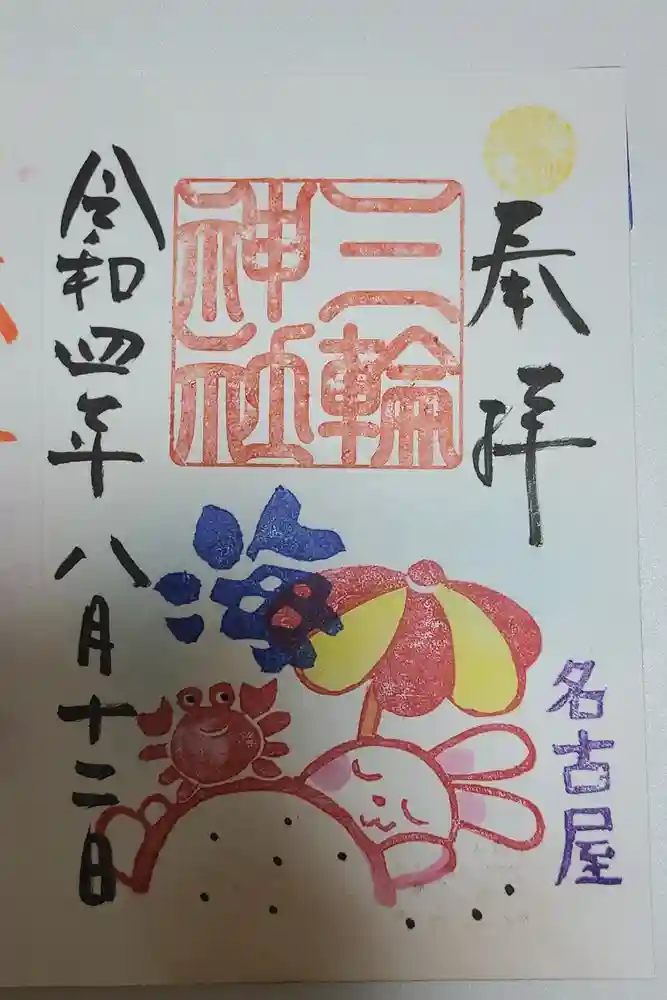 奉拝
名古屋
三輪
神社
海
令和四年八月十二日